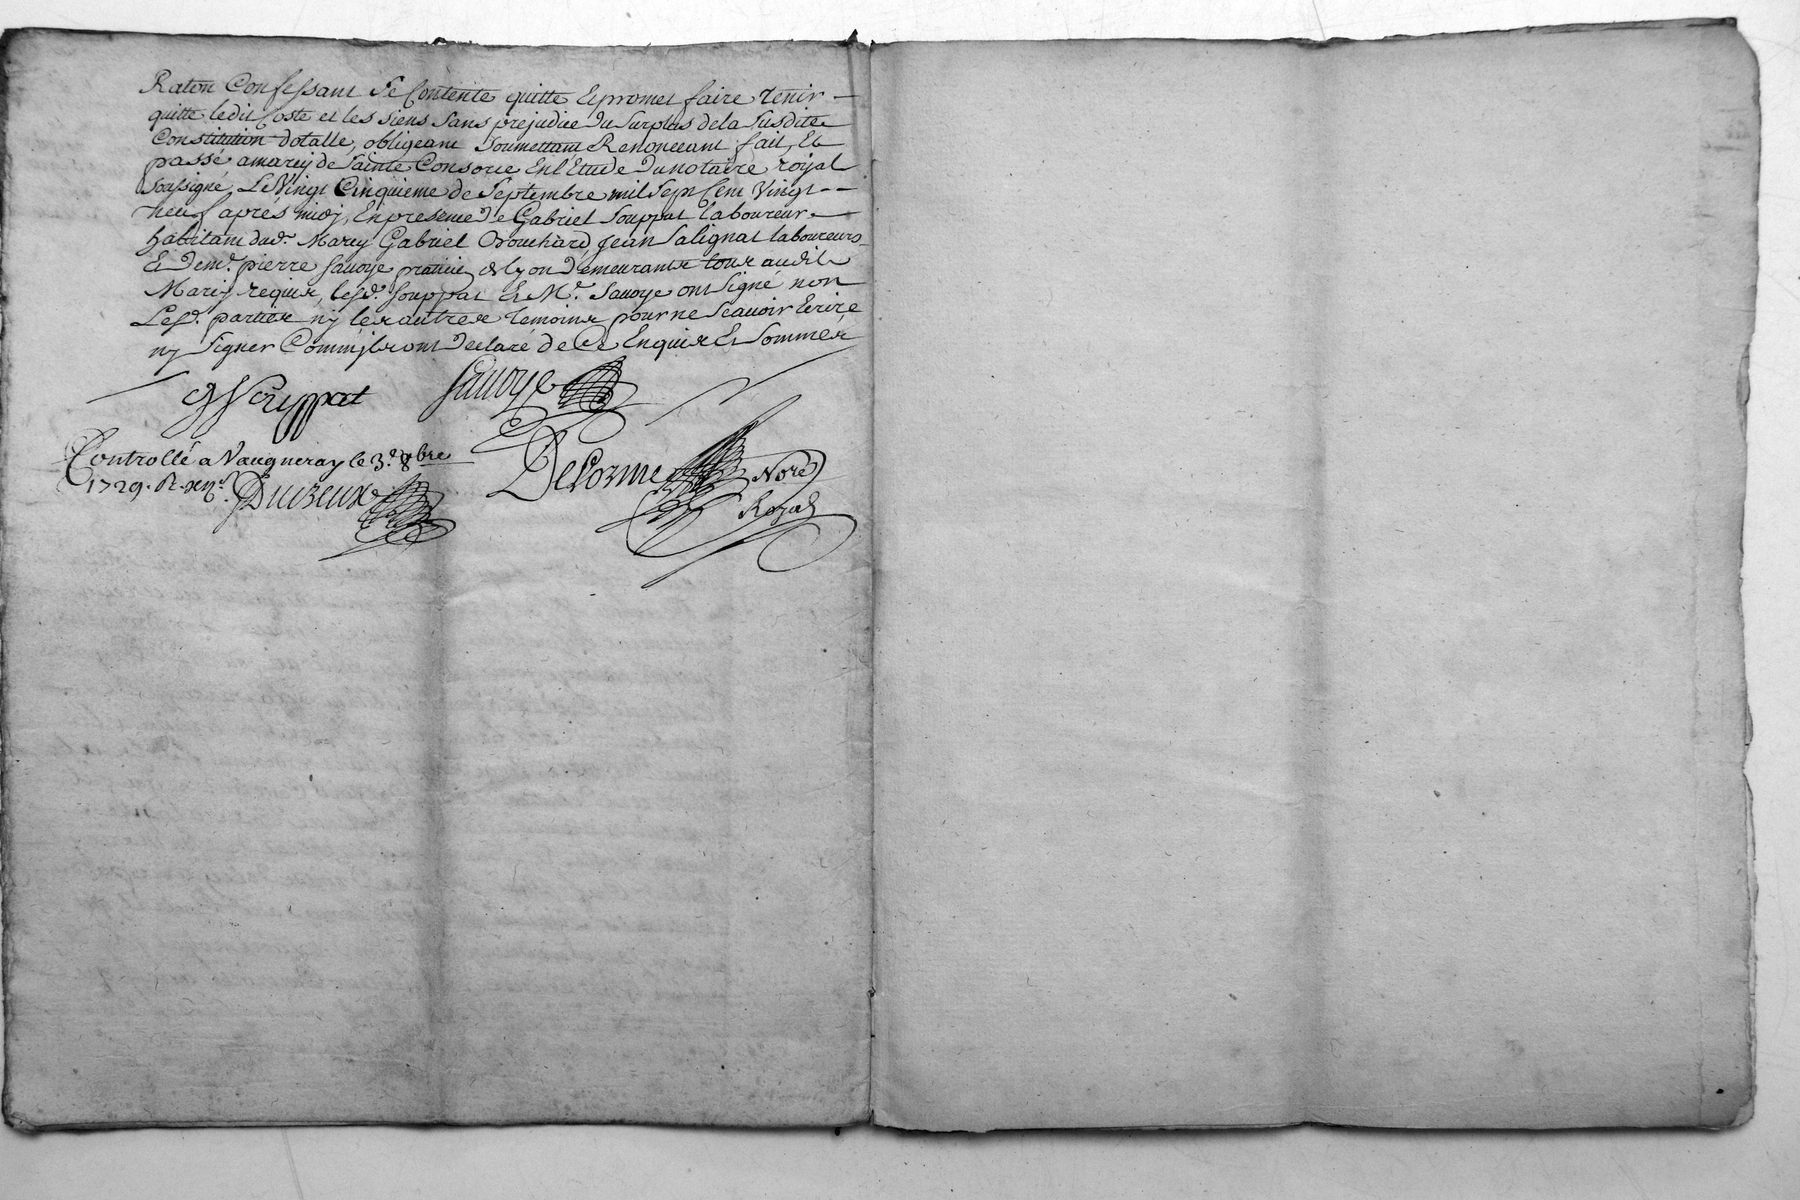 Raton Confessant Se Contente quitte Et promet faire tenir
quitte ledit Coste et les siens sans prejudice Du Surplus dela Susdite
Constitution dotalle, obligeant Soumettant Renonceant fait, Et
passé a marcy de Sainte Consorce En l'Etude Du notaire royal
Soussigné, Le Vingt Cinquieme de Septembre mil Sept Cent Vingt
neuf aprés midy, En presence de Gabriel Souppat laboureur
habitant dud. Marcy Gabriel Bouchard, Jean Salignat laboureurs
Et dem. pierre Sauoye praticien de lyon Demeurants tous audit
Marcy requis, lesd. Souppat Et Me. Sauoye ont Signé non
Lesd. parties ny les autres Temoins pour ne Scauoir Ecrire
ny Signer Comm'ils ont Declaré de Ce Enquis Et Sommés
G Souppat Sauoye
Controllé a Vaugneray le 3e. 8bre
1729. R.
DeLorme Nore
Royal